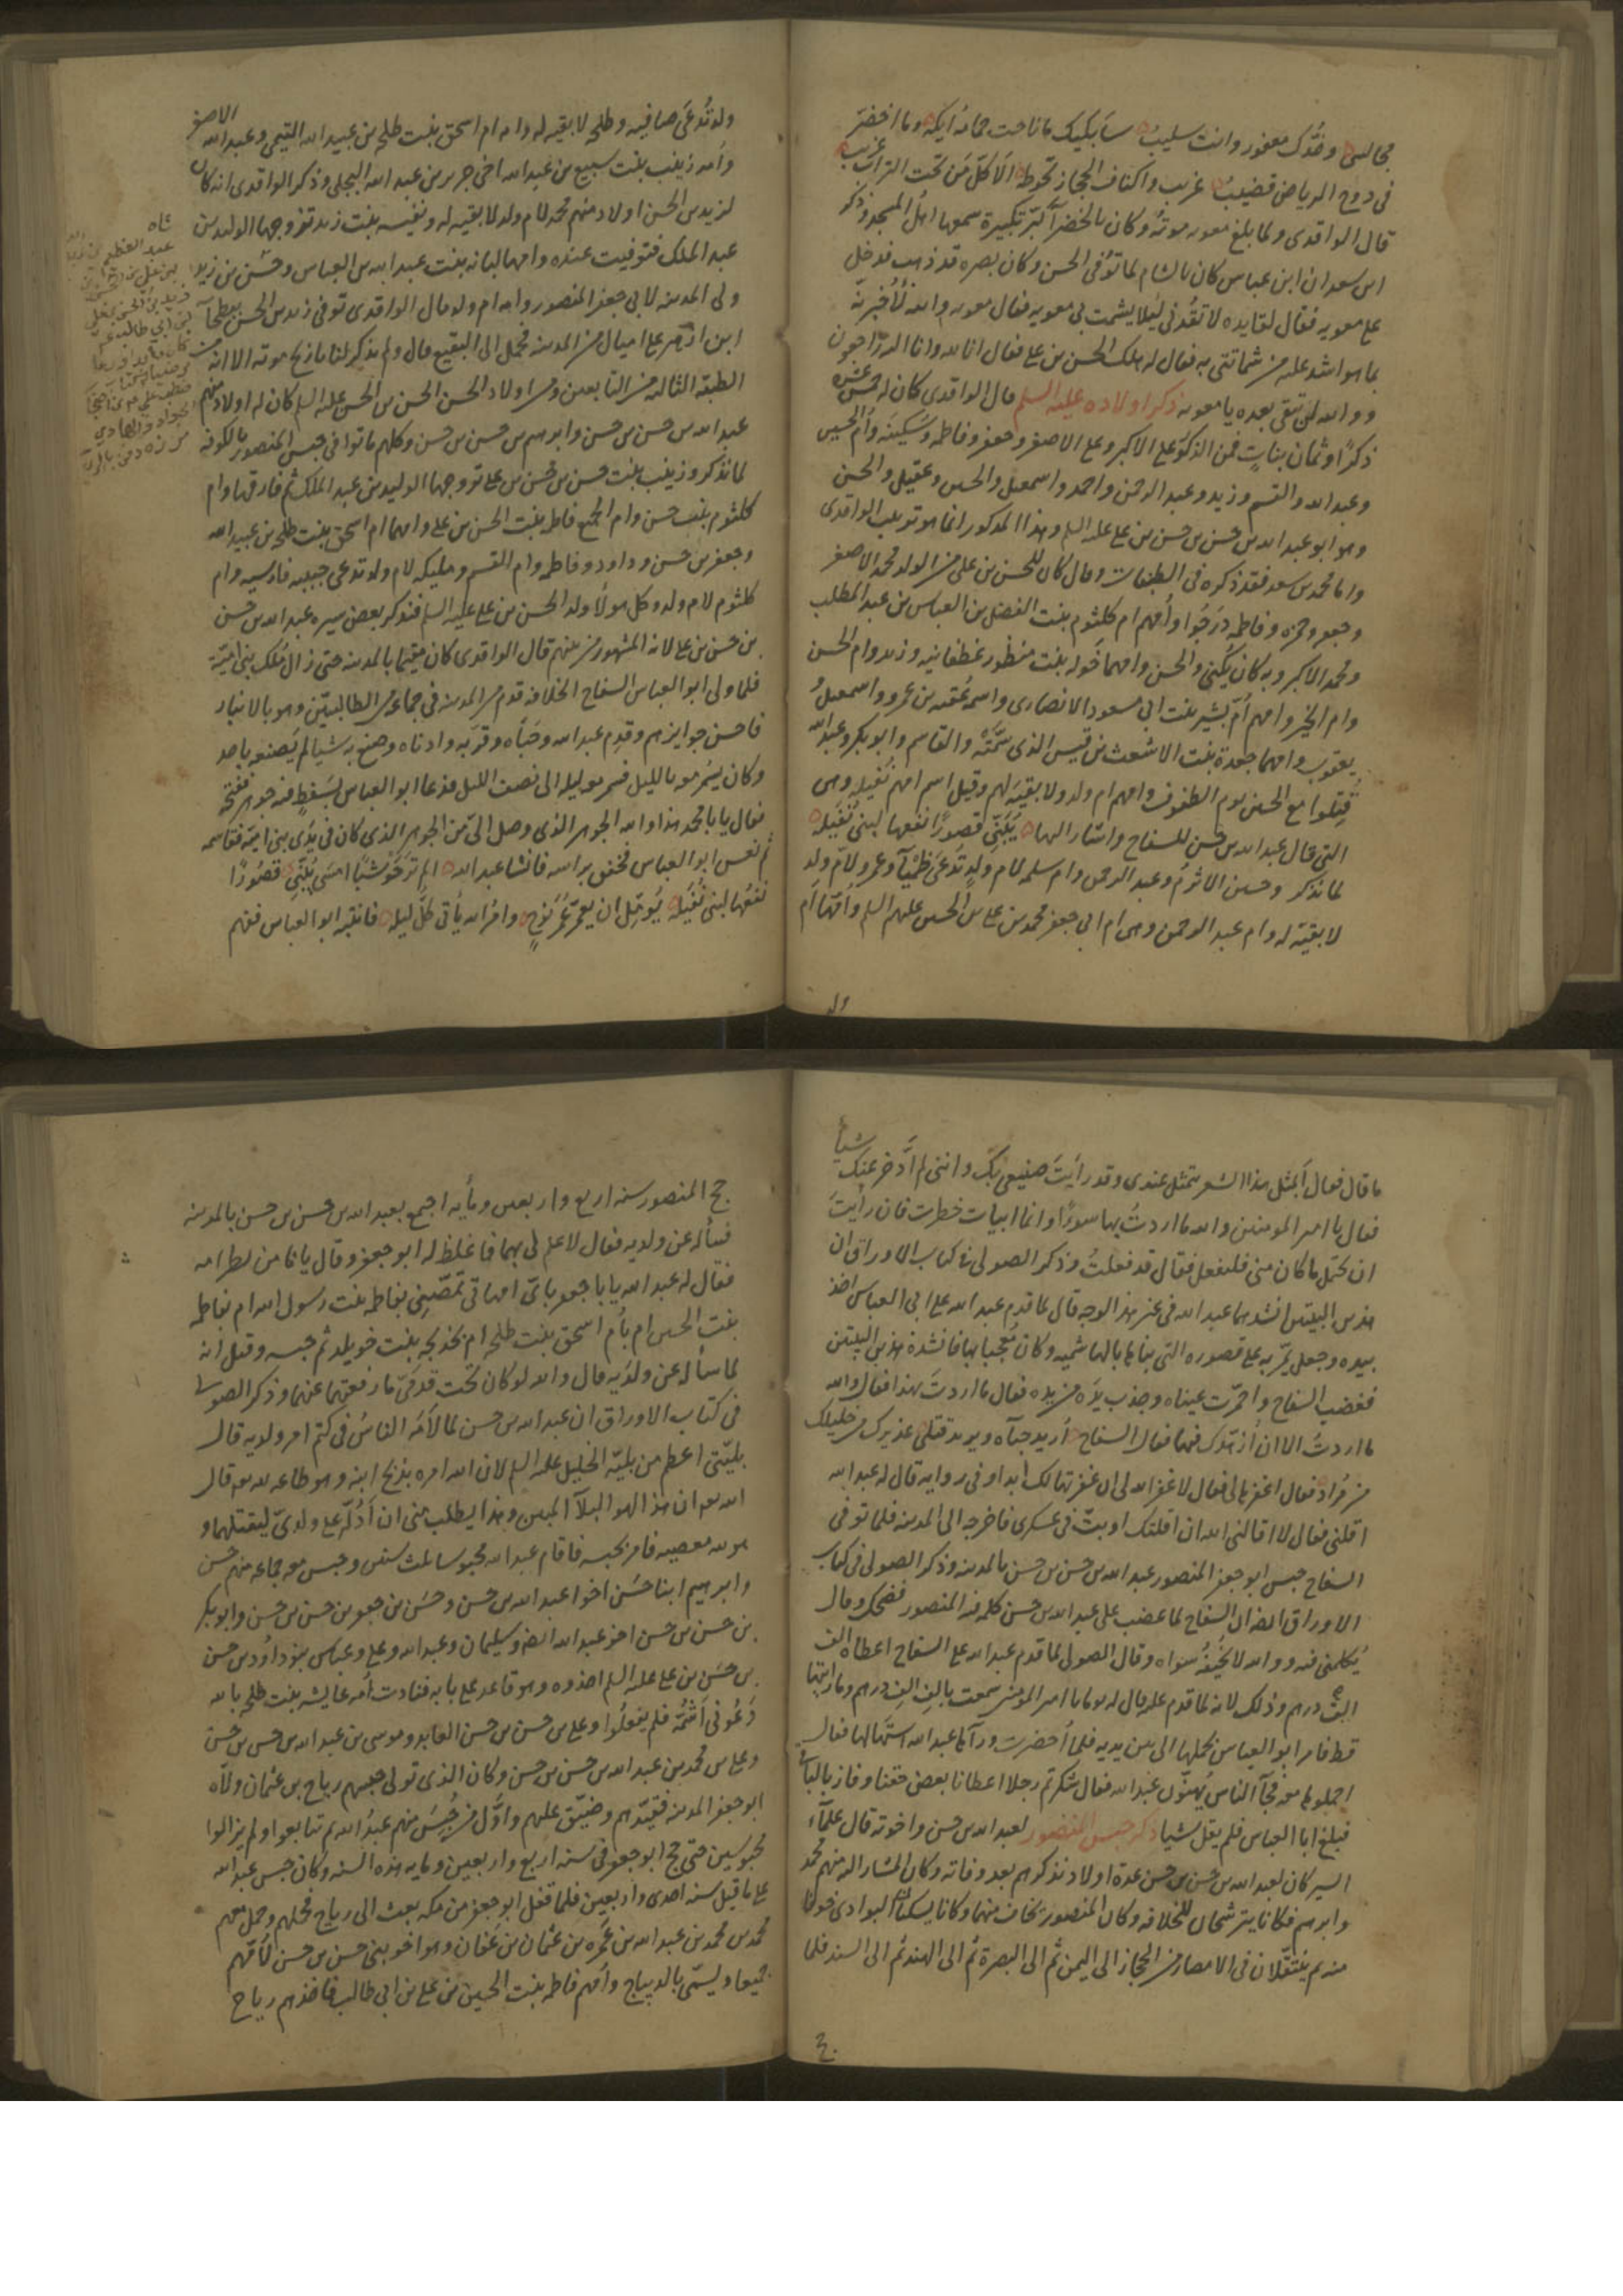 مجالسي وخدك معفور وانت سليب سأبكيك ما ناحت حمامة أيكة وما اخضر
في دوح الرياض قضيب غريب واكناف الحجاز تحوطه الا كل من تحت التراب غريب
قال الواقدي ولما بلغ معوية موته وكان بالخضرآ كبر تكبيرة سمعها اهل المسجد وذكر
ابن سعد ان ابن عباس كان بالشام لما توفي الحسن وكان بصره قد ذهب فدخل
على معوية فقال لقايده لا تقدني ليلا يشمت بي معوية فقال معوية والله لأخبرنه
بما هو اشد عليه من شماتتي به فقال له هلك الحسن بن علي فقال انا لله وانا اليه راجعون
ووالله لن تبقى بعده يا معوية ذكر اولاده عليه السلم قال الواقدي كان له خمس عشرة
ذكرا وثمان بنات فمن الذكور علي الاكبر وعلي الاصغر وجعفر وفاطمة وسكينة وأم الحسين
وعبد الله والقسم وزيد وعبد الرحمن واحمد واسمعيل والحسين وعقيل والحسن
وهو ابو عبد الله بن حسن بن حسن بن علي عليه السلم وهذا المذكور انما هو ترتيب الواقدي
واما محمد بن سعد فقد ذكره في الطبقات وقال كان للحسن بن علي من الولد محمد الاصغر
وجعفر وحمزة وفاطمة درجوا وأمهم ام كلثوم بنت الفضل بن العباس بن عبد المطلب
ومحمد الاكبر وبه كان يكنى والحسن وامهما خولة بنت منظور غطفانية وزيد وام الحسن
وام الخير وامهم أم بشير بنت ابي مسعود الانصاري واسمه عقبه بن عمرو واسمعيل
ويعقوب وامهما جعدة بنت الاشعث بن قيس الذي سمته والقاسم وابو بكر وعبد الله
قتلوا مع الحسين يوم الطفوف وامهم ام ولد ولا بقية لهم وقيل اسم امهم نفيلة وهي
التي قال عبد الله بن حسن للسفاح واشار اليها يبنى قصورا نفعها لبني نفيلة
لما نذكر وحسين الاثرم وعبد الرحمن وام سلمه لام ولد تدعى ظميآ وعمرو لام ولد
لا بقية له وام عبد الرحمن وهي ام ابي جعفر محمد بن علي بن الحسين عليهم السلم وأمها أم
ولد
ولد تدعى صافيه وطلحه لا بقيه له وامه ام اسحق بنت طلحه بن عبيد الله التيمي وعبد الله الاصغر
وأمه زينب بنت سبيع بن عبد الله اخي جرير بن عبد الله البجلي وذكر الواقدي انه كان
لزيد بن الحسن اولاد منهم محمد لام ولد لا بقيه له ونفيسه بنت زيد تزوجها الوليد بن
عبد الملك فتوفيت عنده وامها لبابه بنت عبد الله بن العباس وحسن بن زيد
ولي المدينه لابي جعفر المنصور وامه ام ولد قال الواقدي توفي زيد بن الحسن ببطحآ
ابن ازهر على اميال من المدينه فحمل الى البقيع قال ولم يذكر لنا تاريخ موته الا انه من
الطبقه الثالثه من التابعين ومن اولاد الحسن الحسن بن الحسن عليه السلم كان له اولاد منهم
عبد الله بن حسن بن حسن وابرهيم بن حسن بن حسن وكلهم ماتوا في حبس المنصور بالكوفه
لما نذكر وزينب بنت حسن بن حسن بن علي تزوجها الوليد بن عبد الملك ثم فارقها وام
كلثوم بنت حسن وام الجميع فاطمه بنت الحسين بن علي وامهما ام اسحق بنت طلحه بن عبيد الله
وجعفر بن حسن وداود وفاطمه وام القسم ومليكه لام ولد تدعى حبيبه فارسيه وام
كلثوم لام ولد وكل هولآ ولد الحسن بن علي عليه السلم فنذكر بعض سيره عبد الله بن حسن
بن حسن بن علي لانه المشهور من بينهم قال الواقدي كان مقيما بالمدينه حتى زال ملك بني أمية
فلما ولي ابو العباس السفاح الخلافه قدم من المدينه في جماعه من الطالبيين وهو بالانبار
فاحسن جوايزهم وقدم عبد الله وحباه وقربه وادناه وصنع به شيا لم يصنعه باحد
وكان يسمر معه بالليل فسمر معه ليله الى نصف الليل فدعا ابو العباس بسفط فيه جوهر ففتحه
فقال يا با محمد هذا والله الجوهر الذي وصل الي من الجوهر الذي كان في يدي بني اميه فقاسمه
ثم نعس ابو العباس فخفق براسه فانشا عبد الله الم تر حوشبا امسى يبني قصورا
نفعها لبني نفيلة يؤمل ان يعمر عمر نوح وامر الله يأتي كل ليله فانتبه ابو العباس ففهم
ما قال فقال أبمثل هذا الشعر تتمثل عندي وقد رأيت صنيعي بك وانني لم أدخر عنك شيأ
فقال يا امير المومنين والله ما اردت بها سوءًا وانما ابيات خطرت فان رأيت
ان تحتمل ما كان مني فليفعل فقال قد فعلت وذكر الصولي في كتاب الاوراق ان
هذين البيتين انشدهما عبد الله في غير هذا الوجه قال لما قدم عبد الله على ابي العباس اخذ
بيده وجعل يمر به على قصوره التي بناها بالهاشميه وكان معجبا بها فانشده هذين البيتين
فغضب السفاح واحمرت عيناه وجذب يده من يده فقال ما اردت بهذا فقال والله
ما اردت الا ان أزهدك فيها فقال السفاح أريد حبآه ويريد قتلي عذيرك من خليلك
من مراد فقال اغفرها لي فقال لا غفر الله لي ان غفرتها لك ابدا وفي روايه قال له عبد الله
اقلني فقال لا اقالني الله ان اقلتك او بت في عسكري فاخرجه الى المدينه فلما توفي
السفاح حبس ابو جعفر المنصور عبد الله بن حسن بن حسن بالمدينه وذكر الصولي في كتاب
الاوراق ايضا ان السفاح لما غضب على عبد الله بن حسن كلمه فيه المنصور فضحك وقال
يكلمني فيه ووالله لا يخيفه سواه وقال الصولي لما قدم عبد الله على السفاح اعطاه الف
الف درهم وذلك لانه لما قدم عليه قال له يوما يا امير المومنين سمعت بالف الف درهم وما رايتها
قط فامر ابو العباس بحملها الى بين يديه فلما أحضرت ورآها عبد الله استهالها فقال
احملوها معه فجآ الناس يهنون عبد الله فقال شكرتم رجلا اعطانا بعض حقنا وفاز بالباقي
فبلغ ابا العباس فلم يقل شيا ذكر حبس المنصور لعبد الله بن حسن واخوته قال علمآء
السير كان لعبد الله بن حسن بن حسن عدة اولاد نذكرهم بعد وفاته وكان المشار اليه منهم محمد
وابرهيم فكانا يترشحان للخلافه وكان المنصور يخاف منهما وكانا يسكنان البوادي خوفا
منه ثم ينتقلان في الامصار من الحجاز الى اليمن ثم الى البصرة ثم الى الهند ثم الى السند فلما
حج
حج المنصور سنه اربع واربعين ومأيه اجتمع بعبد الله بن حسن بن حسن بالمدينه
فسأله عن ولديه فقال لا علم لي بهما فاغلظ له ابو جعفر وقال يا ماص بظر امه
فقال له عبد الله يا با جعفر باي امهاتي تمصني بفاطمه بنت رسول الله ام بفاطمه
بنت الحسين ام بأم اسحق بنت طلحه ام بخديجه بنت خويلد ثم حبسه وقيل انه
لما سأله عن ولديه قال والله لو كان تحت قدمي ما رفعتهما عنهما وذكر الصولي
في كتاب الاوراق ان عبد الله بن حسن لما لامه الناس في كتم امر ولديه قال
بليتي اعظم من بليه الخليل عليه السلم لان الله امره بذبح ابنه وهو طاعه لله فقال
الله ان هذا لهو البلآ المبين وهذا يطلب مني ان أدله على ولدي ليقتلهما وهو
لله معصيه فامر بحبسه فاقام عبد الله محبوسا ثلث سنين وحبس معه جماعه منهم حسن
وابرهيم ابنا حسن اخوا عبد الله بن حسن وحسن بن جعفر بن حسن بن حسن وابو بكر
بن حسن بن حسن اخو عبد الله ايضا وسليمان وعبد الله وعلي وعباس بنو داود بن حسن
بن حسن بن علي عليه السلم اخذوه وهو قاعد على بابه فنادت أمه عايشه بنت طلحه بالله
دعوني أشمه فلم يفعلوا وعلي بن حسن بن حسن العابد وموسى بن عبد الله بن حسن بن حسن
وعلي بن محمد بن عبد الله بن حسن بن حسن وكان الذي تولى حبسهم رياح بن عثمان ولاه
ابو جعفر المدينه فقيدهم وضيق عليهم واول من حبس منهم عبد الله ثم تتابعوا ولم يزالوا
محبوسين حتى حج ابو جعفر في سنه اربع واربعين ومايه هذه السنه وكان حبس عبد الله
على ما قيل سنه احدى واربعين فلما قفل ابو جعفر من مكه بعث الى رياح فحملهم وحمل معهم
محمد بن محمد بن عبد الله بن عمره بن عثمان بن عفان وهو اخو بني حسن بن حسن لأمهم
جميعا ويسمى بالديباج وأمهم فاطمه بنت الحسين بن علي بن ابي طالب فاخذهم رياح